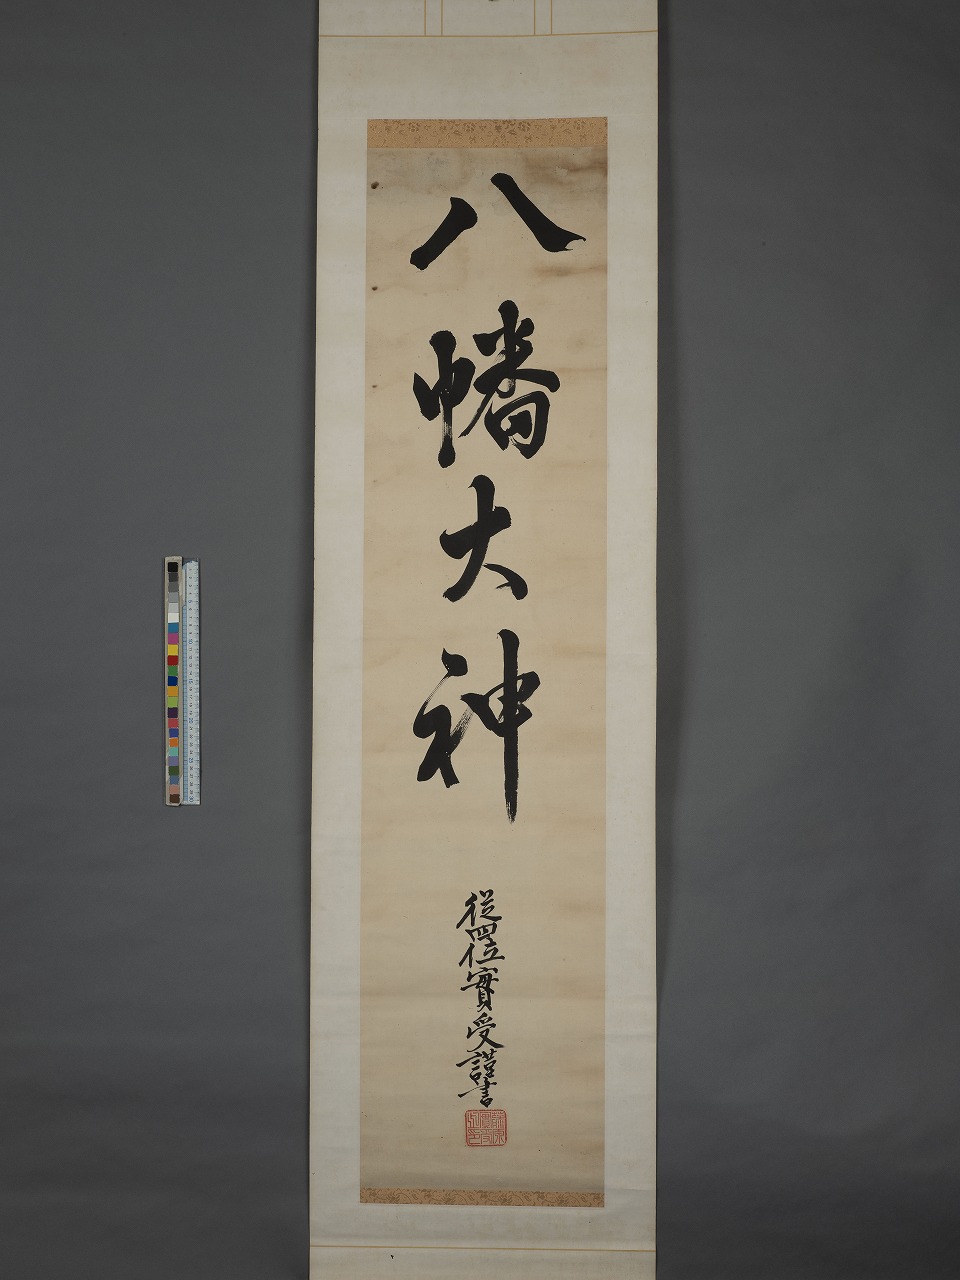 八幡大神
従四位實受謹書